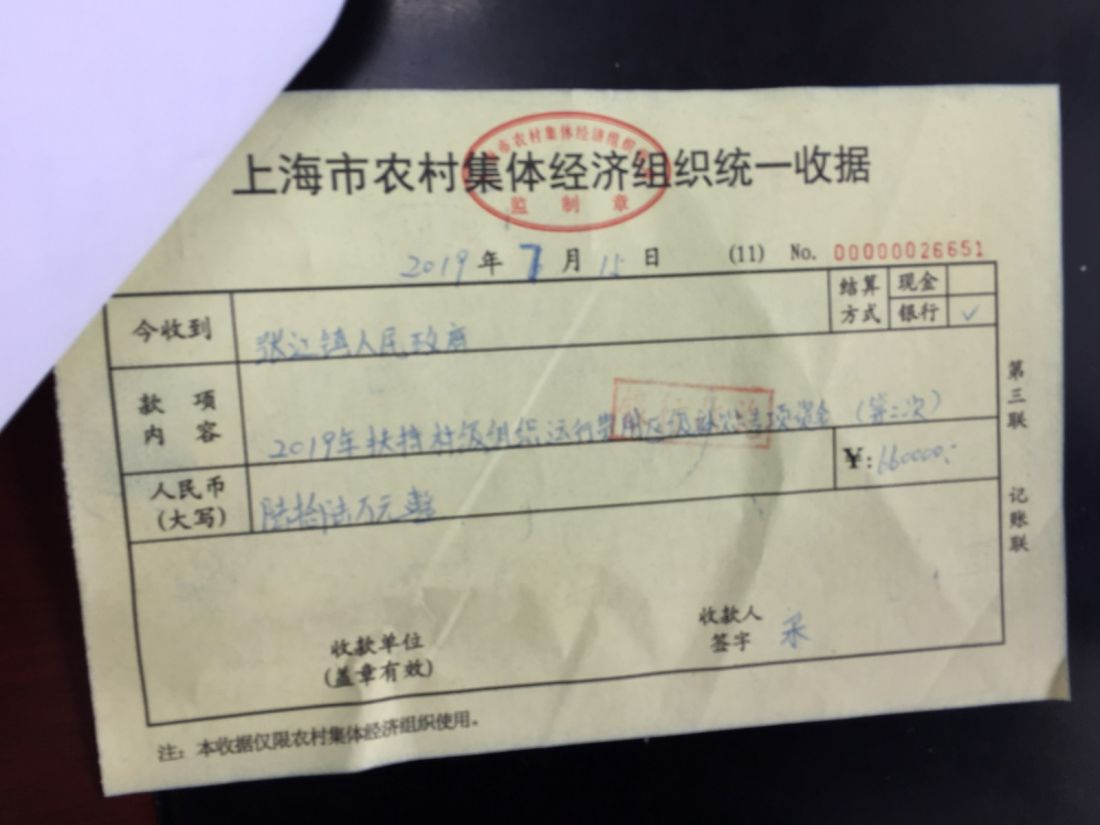 上海市农村集体经济组织统一收据
监制章
2019年7月15日 (11) No. 00000026651
今收到 张江镇人民政府 结算方式 现金 银行 ✓
款项内容 2019年扶持村级组织运行费用区级补贴专项资金（第二次）
人民币(大写) 陆拾陆万元整 ¥:660000:
第三联 记账联
收款单位(盖章有效) 收款人签字
注：本收据仅限农村集体经济组织使用。